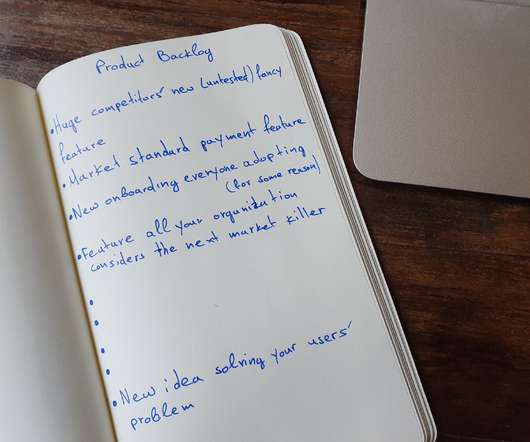 Product Backlog
• Huge competitors' new (untested) fancy
feature
• Market standard payment feature
• New onboarding everyone adopting
(for some reason)
• Feature all your organization
considers the next market killer
•
•
•
•
• New idea solving your users'
problem